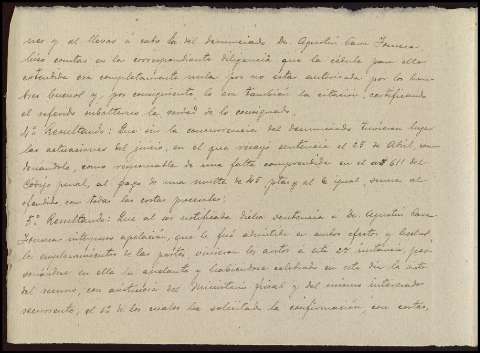 nes y al llevar á cabo la del denunciado Dn. Agustin Cano Fonseca
hizo constar en la correspondiente diligencia que la cédula para ello
extendida era completamente nula por no estar autorizada por los hom-
bres buenos y, por consiguiente lo era tambien la citacion, certificando
el referido subalterno la verdad de lo consignado.
4º Resultando: Que sin la concurrencia del denunciado tuvieron lugar
las actuaciones del juicio, en el que recayó sentencia el 25 de Abril, con-
denándolo, como responsable de una falta comprendida en el art 611 del
Código penal, al pago de una multa de 45 ptas y al igual suma al
ofendido con todas las costas procesales:
5º Resultando: Que al ser notificada dicha sentencia á Dn. Agustin Cano
Fonseca interpuso apelación, que le fué admitida en ambos efectos y hechos
los emplazamientos de las partes, vinieron los autos á esta 2ª instancia, perso-
nándose en ella la apelante y habiendose celebrado en este dia la vista
del recurso, con asistencia del Ministerio fiscal y del mismo interesado
recurrente, el 1º de los cuales ha solicitado la confirmación, con costas,